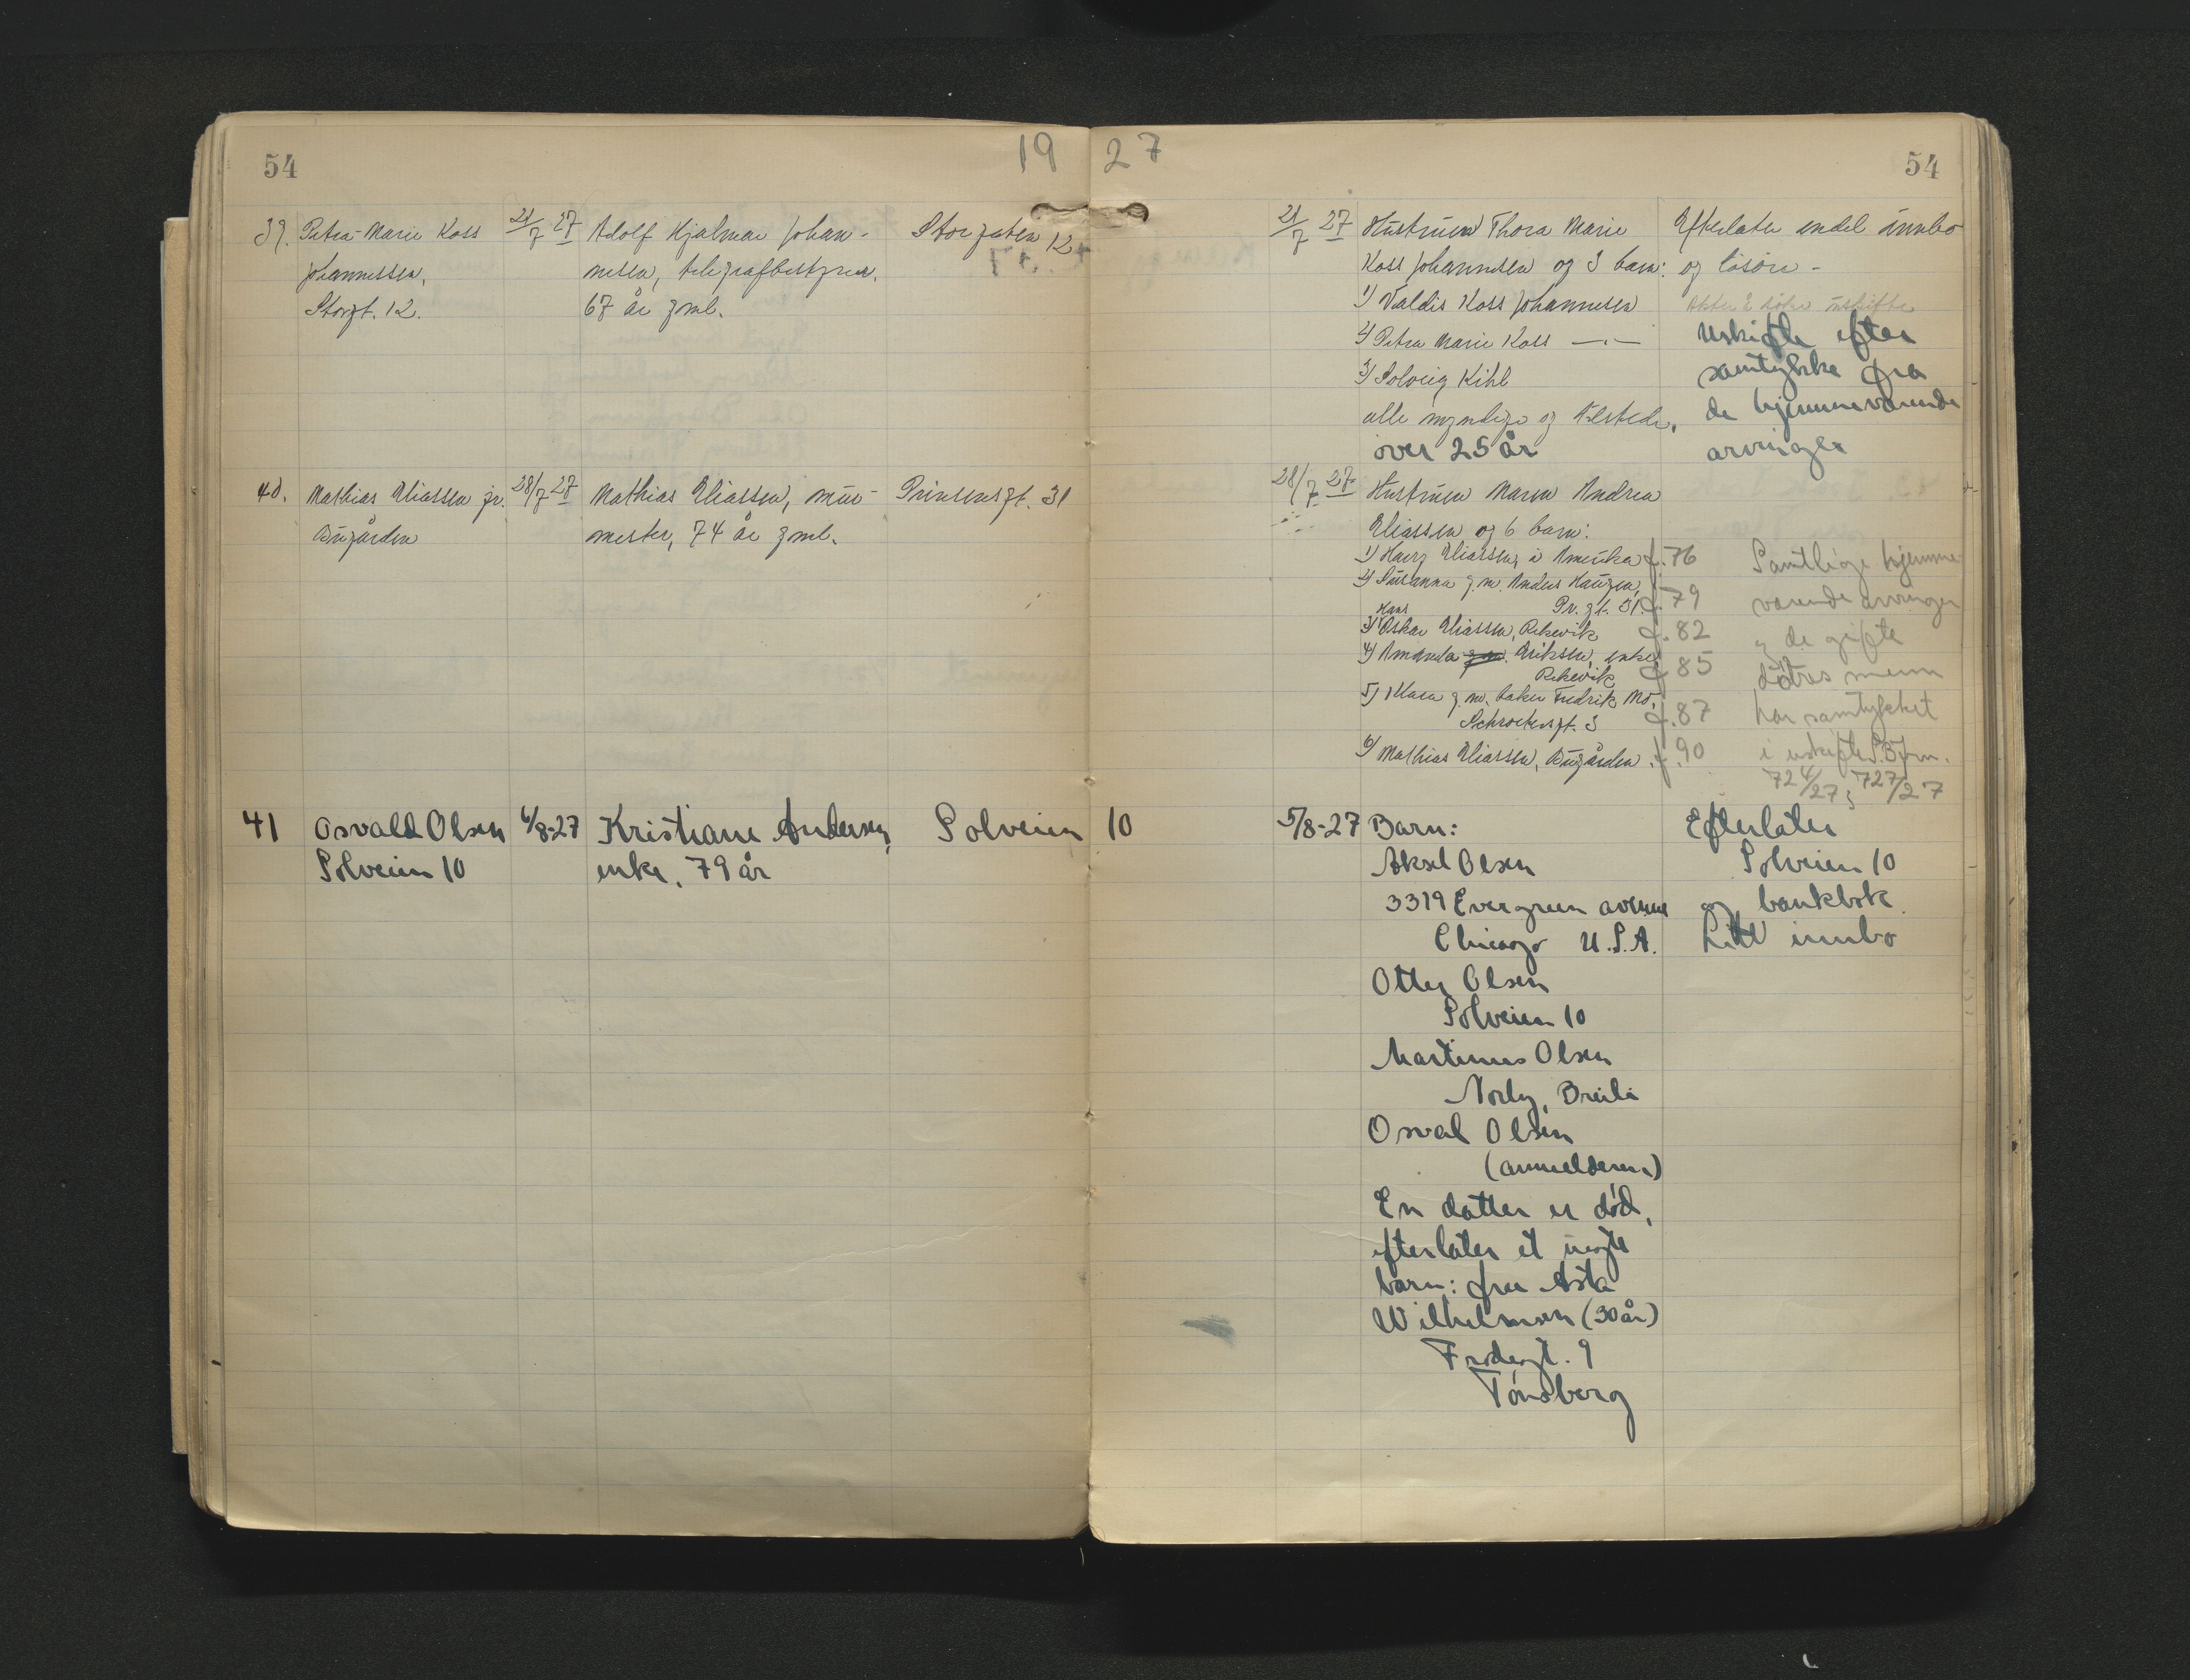 54
19 27
54
39. Petra Marie Koss
Johannessen,
Storgt. 12.
21/7 27
Adolf Hjalmar Johan-
nesen, telegrafbestyrer,
67 år gml.
Storgaten 12
21/7 27
Hustruen Thora Marie
Koss Johannesen og 3 barn:
1) Valdis Koss Johannesen
2) Petra Marie Koss —"—
3) Solveig Kihl
alle myndige og tilstede,
over 25 år
Efterlater endel innbo
og lösöre -
uskifte
Uskifte efter
samtykke fra
de hjemmeværende
arvinger
40. Mathias Eliassen jr.
Bugården
28/7 27
Mathias Eliassen, mur-
mester, 74 år gml.
Prinsensgt. 31
28/7 27
Hustruen Maren Andrea
Eliassen og 6 barn:
1) Harry Eliassen, i Amerika f. 76
2) Susanna g.m. Anders Haugen,
Pr. gt. 31. f. 79
Hans
3) Oskar Eliassen, Rekevik f. 82
4) Amanda g.m. Eriksen, enke,
Rekevik f. 85
5) Klara g.m. baker Fredrik Mo,
Schrøtersgt. 3 f. 87
6) Mathias Eliassen, Bugården. f. 90
Samtlige hjemme-
værende arvinger
og de gifte
døtres menn
har samtykket
i uskifte S. Bjrn.
724/27, 727/27
41 Osvald Olsen
Solveien 10
6/8-27
Kristiane Andersen,
enke, 79 år
Solveien 10
5/8-27
Barn:
Aksel Olsen
3319 Evergreen avenue
Chicago U.S.A.
Otter Olsen
Solveien 10
Martinus Olsen
Norby, Breili
Osval Olsen
(anmelderen)
En datter er død,
efterlater et megte
barn: frue Asta
Wilhelmsen (30 år)
Frodegt. 9
Tønsberg
Efterlater
Solveien 10
og bankbok
Litt innbo